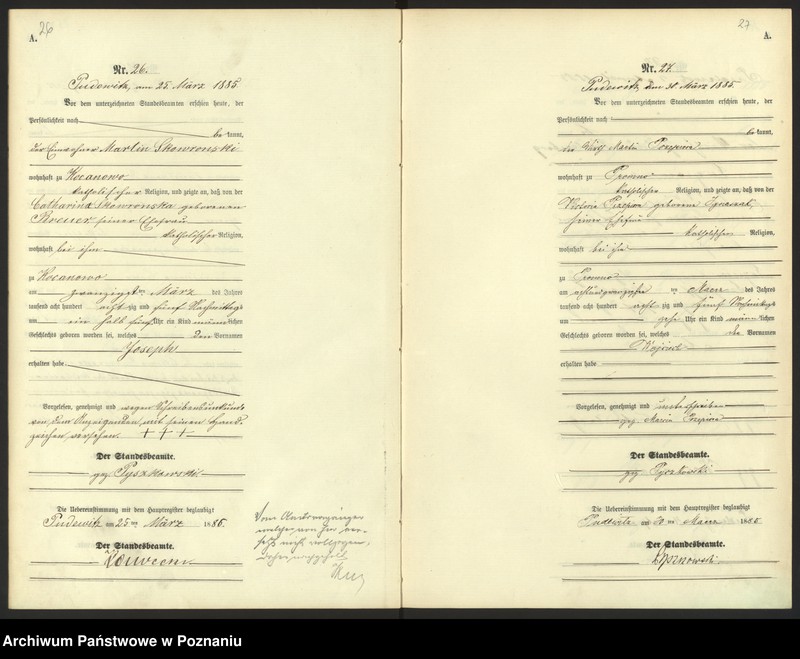 26
A.
Nr. 26.
Pudewitz, am 25. März 1885
Vor dem unterzeichneten Standesbeamten erschien heute, der
Persönlichkeit nach
be kannt,
der Einwohner Martin Skowronski
wohnhaft zu Kocanowo
katholischer Religion, und zeigte an, daß von der
Catharina Skowronska geborenen
seiner Ehefrau
katholischer Religion,
wohnhaft bei ihm
zu Kocanowo
am zwanzigsten März des Jahres
tausend acht hundert acht zig und fünf Nachmittags
um ein halb fünf Uhr ein Kind männlichen
Geschlechts geboren worden sei, welches den Vornamen
Joseph
erhalten habe
Vorgelesen, genehmigt und wegen Schreibensunkunde
von dem Anzeigenden mit seinen Hand-
zeichen versehen. + + +
Der Standesbeamte.
gez. Pyszkowski
Die Uebereinstimmung mit dem Hauptregister beglaubigt
Pudewitz am 25ten März 1885
Der Standesbeamte.
Vom Amtsvorgänger
27
A.
Nr. 27.
Pudewitz, am 30. März 1885.
Vor dem unterzeichneten Standesbeamten erschien heute, der
Persönlichkeit nach
be kannt,
der Wirth Martin
wohnhaft zu Promno
katholischer Religion, und zeigte an, daß von der
geborene
seiner Ehefrau
katholischer Religion,
wohnhaft bei ihm
zu Promno
am achtundzwanzigsten ten Maerz des Jahres
tausend acht hundert acht zig und fünf Vormittags
um zehn Uhr ein Kind männlichen
Geschlechts geboren worden sei, welches den Vornamen
erhalten habe
Vorgelesen, genehmigt und unterschrieben
gez.
Der Standesbeamte.
gez. Pyszkowski
Die Uebereinstimmung mit dem Hauptregister beglaubigt
Pudewitz am 30ten Maerz 1885
Der Standesbeamte.
Archiwum Państwowe w Poznaniu